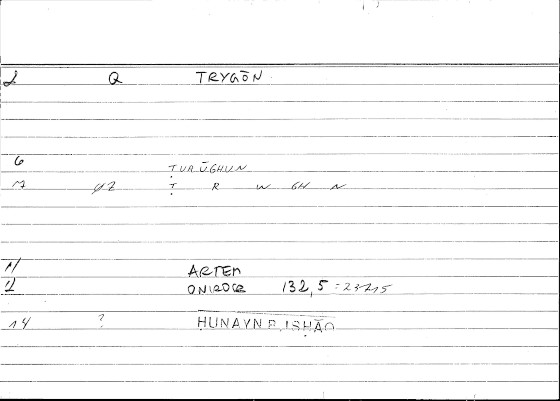 2 Q TRYGŌN
6 ṬURŪGHUN
7 42 Ṭ R W GH N
11 ARTEM
12 ONIROCR 132,5 = 237,15
14 ? ḤUNAYN B. ISḤĀQ